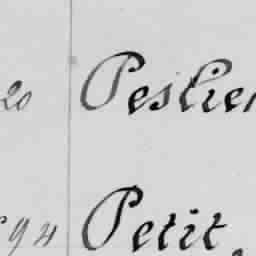 20 Peslier
94 Petit.